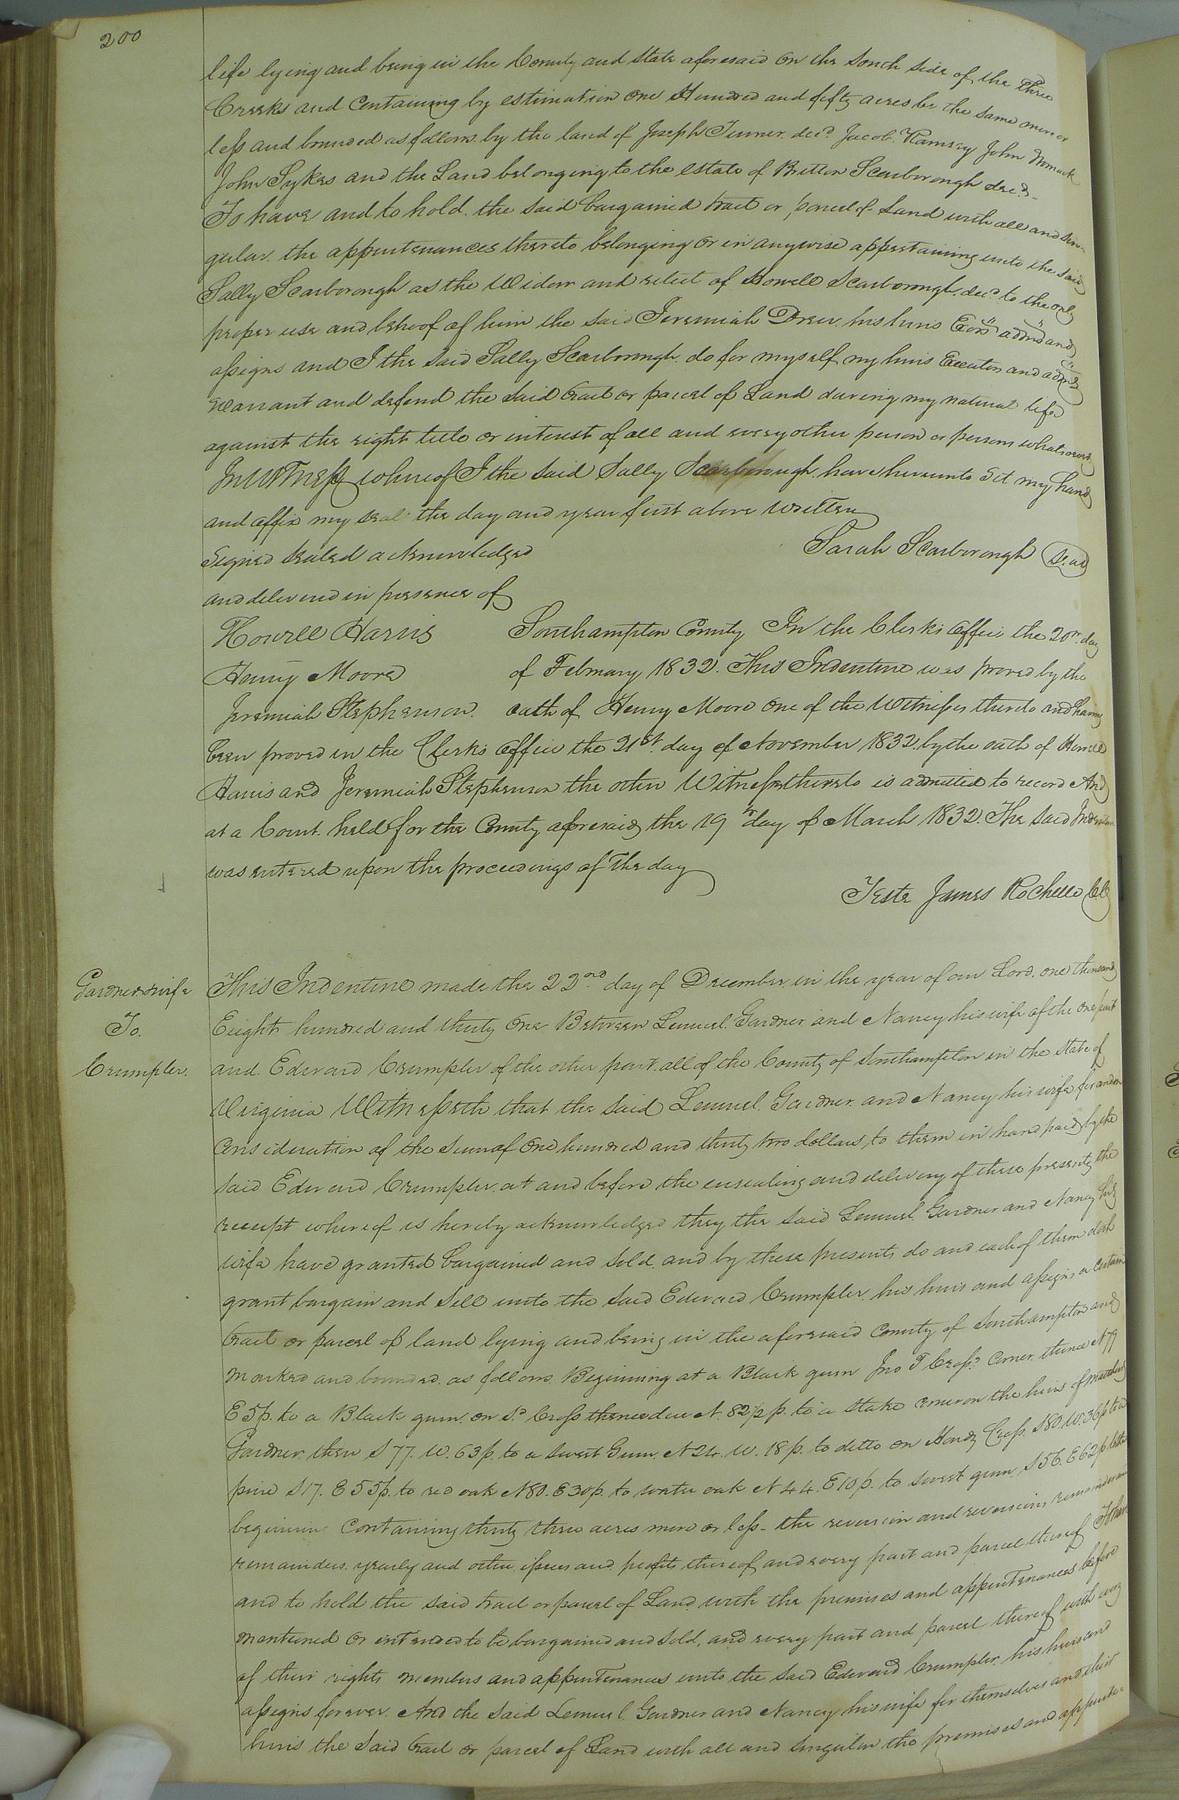 200
life lying and being in the County and state aforesaid on the South side of the three
Creeks and Containing by estimation one Hundred and fifty acres be the same more or
less and bounded as follows by the land of Joseph Turner decd. Jacob Ramsey John Womack
John Sykes and the Land belonging to the estate of Britton Scarborough decd.
To have and to hold the said bargained tract or parcel of Land with all and sin-
gular the appurtenances thereto belonging or in anywise appertaining unto the said
Sally Scarborough as the Widow and relict of Howell Scarborough decd. to the only
proper use and behoof of him the said Jeremiah Drew his heirs Exors admrs and
assigns and I the said Sally Scarborough do for myself my heirs Executors and admrs
warrant and defend the said tract or parcel of Land during my natural life
against the right title or interest of all and every other person or persons whatsoever
In Witness whereof I the said Sally Scarborough have hereunto Set my hand
and affix my seal the day and year first above written
Signed Sealed acknowledged
Sarah Scarborough Seal
and delivered in presence of
Howell Harris
Henry Moore
Jeremiah Stephenson.
Southampton County In the Clerks Office the 20th day
of February 1832. This Indenture was proved by the
oath of Henry Moore one of the Witnesses thereto and having
been proved in the Clerks Office the 21st day of November 1832 by the oath of Howell
Harris and Jeremiah Stephenson the other Witness thereto is admitted to record And
at a Court held for the County aforesaid the 19th day of March 1832 The said Indenture
was entered upon the proceedings of the day
Teste James Rochelle Clk
Gardner & wife
To
Crumpler.
This Indenture made the 22nd day of December in the year of our Lord one thousand
Eight hundred and thirty One Between Lemuel Gardner and Nancy his wife of the one part
and Edward Crumpler of the other part all of the County of Southampton in the State of
Virginia Witnesseth that the said Lemuel Gardner and Nancy his wife for and in
Consideration of the sum of One hundred and thirty two dollars to them in hand paid by the
said Edward Crumpler at and before the ensealing and delivery of these presents the
receipt whereof is hereby acknowledged they the said Lemuel Gardner and Nancy his
wife have granted bargained and sold and by these presents do and each of them doth
grant bargain and sell unto the said Edward Crumpler his heirs and assigns a certain
tract or parcel of land lying and being in the aforesaid County of Southampton and
marked and bounded as follows Beginning at a Black gum Jno T Cross's Corner thence N 79
E 5p. to a Black gum on sd Cross thence due N. 82½ p. to a stake corner on the heirs of
Gardner then S 77. W. 63p to a sweet Gum N 24. W. 18 p. to ditto on Hardy Cross. S 80. W. 36p to a
pine S 17. E 55p. to red oak N 80. E 30p. to water oak N 44. E 10p. to sweet gum S 56. E 62p to the
beginning Containing thirty three acres more or less - the reversion and reversions remainder and
remainders yearly and other issues and profits thereof and every part and parcel thereof To have
and to hold the said tract or parcel of Land with the premises and appurtenances before
mentioned or intended to be bargained and sold, and every part and parcel thereof with every
of their rights members and appurtenances unto the said Edward Crumpler his heirs and
assigns forever And the said Lemuel Gardner and Nancy his wife for themselves and their
heirs the said tract or parcel of Land with all and singular the premises and appurte-